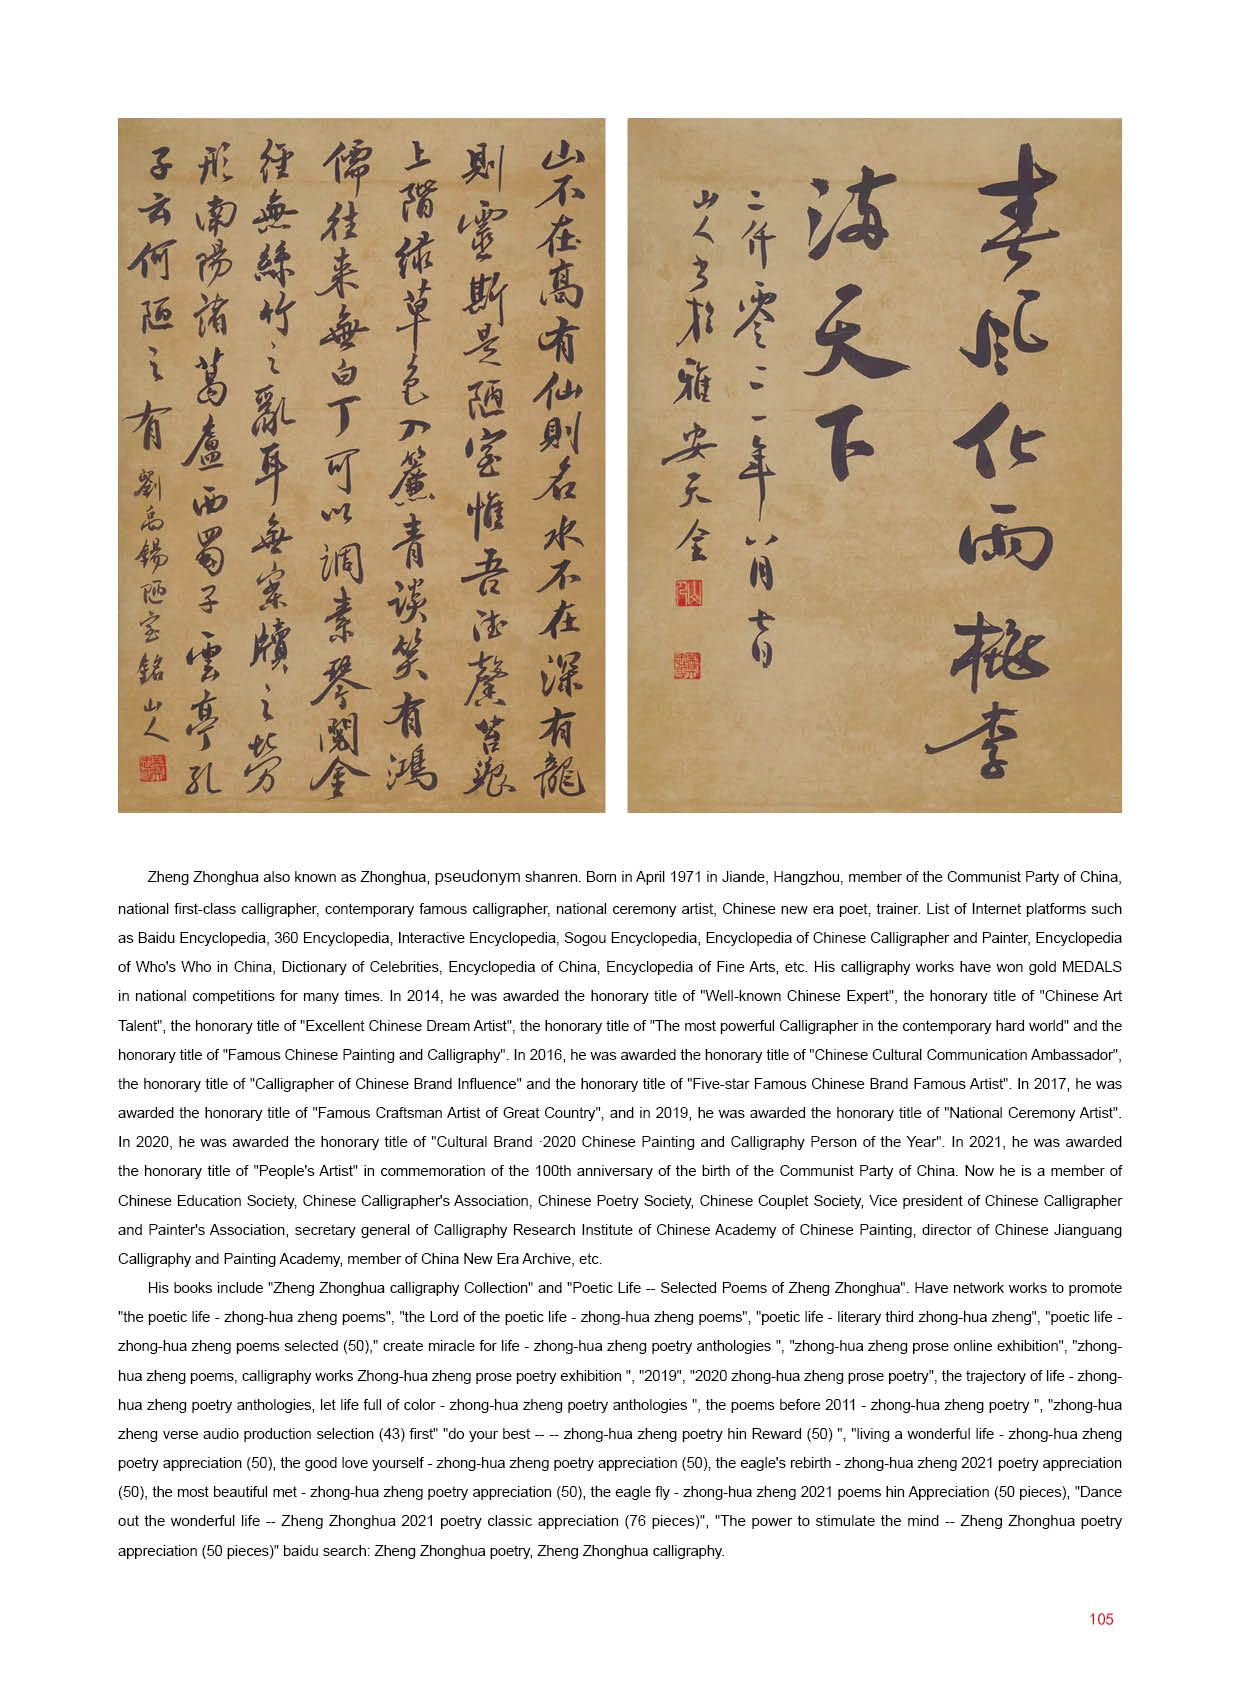 山不在高有仙則名水不在深有龍
則靈斯是陋室惟吾德馨苔痕
上階緑草色入簾青談笑有鴻
儒往来無白丁可以調素琴閲金
經無絲竹之亂耳無案牘之勞
形南陽諸葛廬西蜀子雲亭孔
子云何陋之有 劉禹錫陋室銘 山人
春风化雨桃李
满天下
二仟零二一年八月七日
山人书於雅安天全
Zheng Zhonghua also known as Zhonghua, pseudonym shanren. Born in April 1971 in Jiande, Hangzhou, member of the Communist Party of China,
national first-class calligrapher, contemporary famous calligrapher, national ceremony artist, Chinese new era poet, trainer. List of Internet platforms such
as Baidu Encyclopedia, 360 Encyclopedia, Interactive Encyclopedia, Sogou Encyclopedia, Encyclopedia of Chinese Calligrapher and Painter, Encyclopedia
of Who's Who in China, Dictionary of Celebrities, Encyclopedia of China, Encyclopedia of Fine Arts, etc. His calligraphy works have won gold MEDALS
in national competitions for many times. In 2014, he was awarded the honorary title of "Well-known Chinese Expert", the honorary title of "Chinese Art
Talent", the honorary title of "Excellent Chinese Dream Artist", the honorary title of "The most powerful Calligrapher in the contemporary hard world" and the
honorary title of "Famous Chinese Painting and Calligraphy". In 2016, he was awarded the honorary title of "Chinese Cultural Communication Ambassador",
the honorary title of "Calligrapher of Chinese Brand Influence" and the honorary title of "Five-star Famous Chinese Brand Famous Artist". In 2017, he was
awarded the honorary title of "Famous Craftsman Artist of Great Country", and in 2019, he was awarded the honorary title of "National Ceremony Artist".
In 2020, he was awarded the honorary title of "Cultural Brand ·2020 Chinese Painting and Calligraphy Person of the Year". In 2021, he was awarded
the honorary title of "People's Artist" in commemoration of the 100th anniversary of the birth of the Communist Party of China. Now he is a member of
Chinese Education Society, Chinese Calligrapher's Association, Chinese Poetry Society, Chinese Couplet Society, Vice president of Chinese Calligrapher
and Painter's Association, secretary general of Calligraphy Research Institute of Chinese Academy of Chinese Painting, director of Chinese Jianguang
Calligraphy and Painting Academy, member of China New Era Archive, etc.
His books include "Zheng Zhonghua calligraphy Collection" and "Poetic Life -- Selected Poems of Zheng Zhonghua". Have network works to promote
"the poetic life - zhong-hua zheng poems", "the Lord of the poetic life - zhong-hua zheng poems", "poetic life - literary third zhong-hua zheng", "poetic life -
zhong-hua zheng poems selected (50)," create miracle for life - zhong-hua zheng poetry anthologies ", "zhong-hua zheng prose online exhibition", "zhong-
hua zheng poems, calligraphy works Zhong-hua zheng prose poetry exhibition ", "2019", "2020 zhong-hua zheng prose poetry", the trajectory of life - zhong-
hua zheng poetry anthologies, let life full of color - zhong-hua zheng poetry anthologies ", the poems before 2011 - zhong-hua zheng poetry ", "zhong-hua
zheng verse audio production selection (43) first" "do your best -- -- zhong-hua zheng poetry hin Reward (50) ", "living a wonderful life - zhong-hua zheng
poetry appreciation (50), the good love yourself - zhong-hua zheng poetry appreciation (50), the eagle's rebirth - zhong-hua zheng 2021 poetry appreciation
(50), the most beautiful met - zhong-hua zheng poetry appreciation (50), the eagle fly - zhong-hua zheng 2021 poems hin Appreciation (50 pieces), "Dance
out the wonderful life -- Zheng Zhonghua 2021 poetry classic appreciation (76 pieces)", "The power to stimulate the mind -- Zheng Zhonghua poetry
appreciation (50 pieces)" baidu search: Zheng Zhonghua poetry, Zheng Zhonghua calligraphy.
105